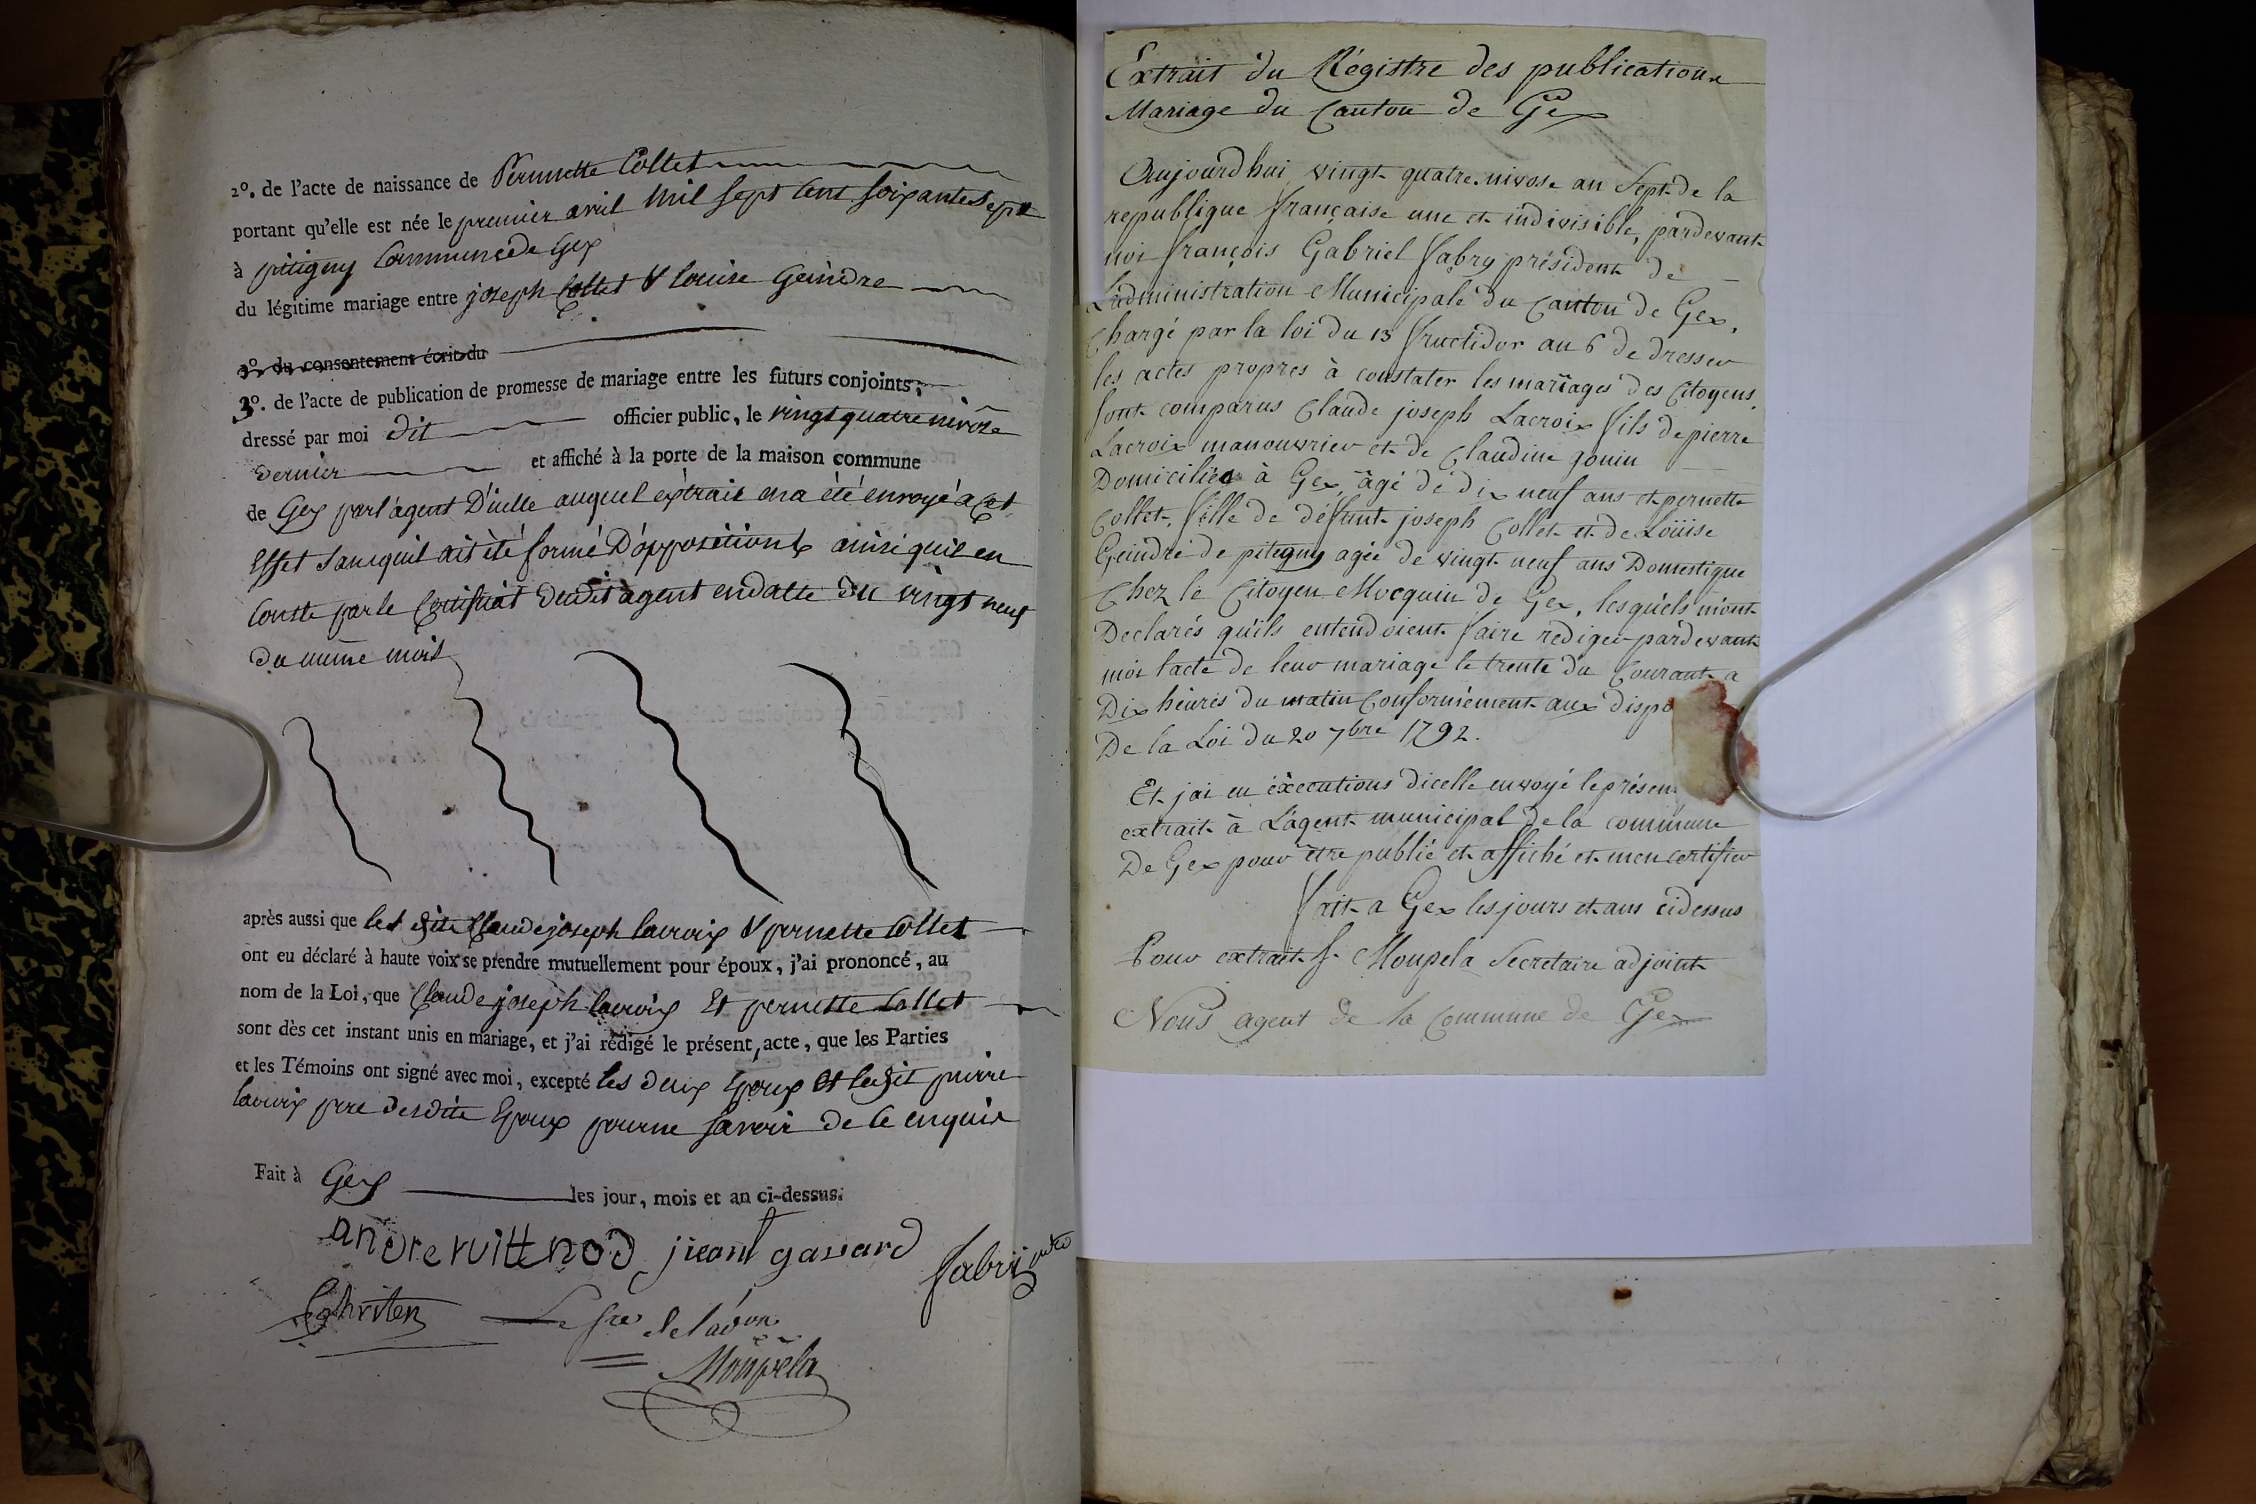 2º. de l'acte de naissance de Pernnette Collet
portant qu'elle est née le premier avril Mil sept Cent soixante sept
à pittigny Commune de Gex
du légitime mariage entre joseph Collet & Louise Geindre
3º. du consentement écrit du
3º. de l'acte de publication de promesse de mariage entre les futurs conjoints,
dressé par moi dit officier public, le vingt quatre nivôse
dernier et affiché à la porte de la maison commune
de Gex par l'agent D'icelle auquel extrait en a été envoyé a Cet
Effet sans quil ait été formé D'opposition & ainsi quil en
Conste par le Certificat dudit agent en datte du vingt neuf
du même mois
après aussi que les dits Claude joseph lacroix & pernette Collet
ont eu déclaré à haute voix se prendre mutuellement pour époux, j'ai prononcé, au
nom de la Loi, que Claude joseph lacroix Et pernette Collet
sont dès cet instant unis en mariage, et j'ai rédigé le présent acte, que les Parties
et les Témoins ont signé avec moi, excepté les deux Epoux et ledit pierre
lacroix pere desdits Epoux pour ne savoir de ce enquis
Fait à Gex les jour, mois et an ci-dessus.
andre vuittnod jicant gassard
fabri
Le sre de l'adon
Moupela
Extrait du Régistre des publications
Mariage du Canton de Gex
Aujourdhui vingt quatre nivose an Sept de la
republique française une et indivisible, pardevant
moi françois Gabriel fabry président de
L'administration Municipale du Canton de Gex,
Chargé par la loi du 13 fructidor an 6 de dresser
les actes propres à constater les mariages des Citoyens,
sont comparus Claude joseph Lacroix fils de pierre
Lacroix manouvrier et de Claudine gonin
Domiciliés à Gex, âgé de dix neuf ans et pernette
Collet, fille de défunt joseph Collet et de Loüise
Geindre de pitegny agée de vingt neuf ans Domestique
Chez le Citoyen Mocquin de Gex, lesquels m'ont
Declarés qu'ils entendoient faire rediger pardevant
moi l'acte de leur mariage le trente du Courant a
Dix heures du matin Conformément aux dispo
De la Loi du 20 7bre 1792.
Et j'ai en éxecutions dicelle envoyé le présen
extrait à L'agent municipal de la commune
De Gex pour être publié et affiché et m'en certifier
fait a Gex les jours et ans cidessus
Pour extrait f. Moupela Secretaire adjoint
Nous agent de la Commune de Gex